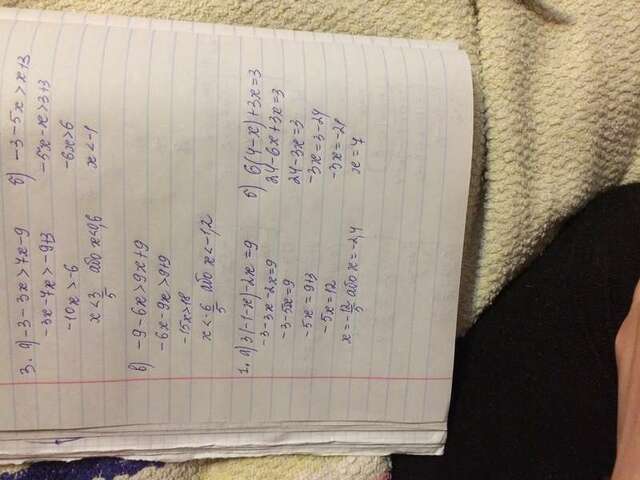 3. а) -3-3x>7x-9
-3x-7x>-9+3
-10x>-6
x<3/5 або x<0,6
б) -3-5x>x+3
-5x-x>3+3
-6x>6
x<-1
в) -9-6x>9x+9
-6x-9x>9+9
-15x>18
x<-6/5 або x<-1,2
1. а) 3(-1-x)-2x=9
-3-3x-2x=9
-3-5x=9
-5x=9+3
-5x=12
x=-12/5 або x=-2,4
б) 6(4-x)+3x=3
24-6x+3x=3
24-3x=3
-3x=3-24
-3x=-21
x=7